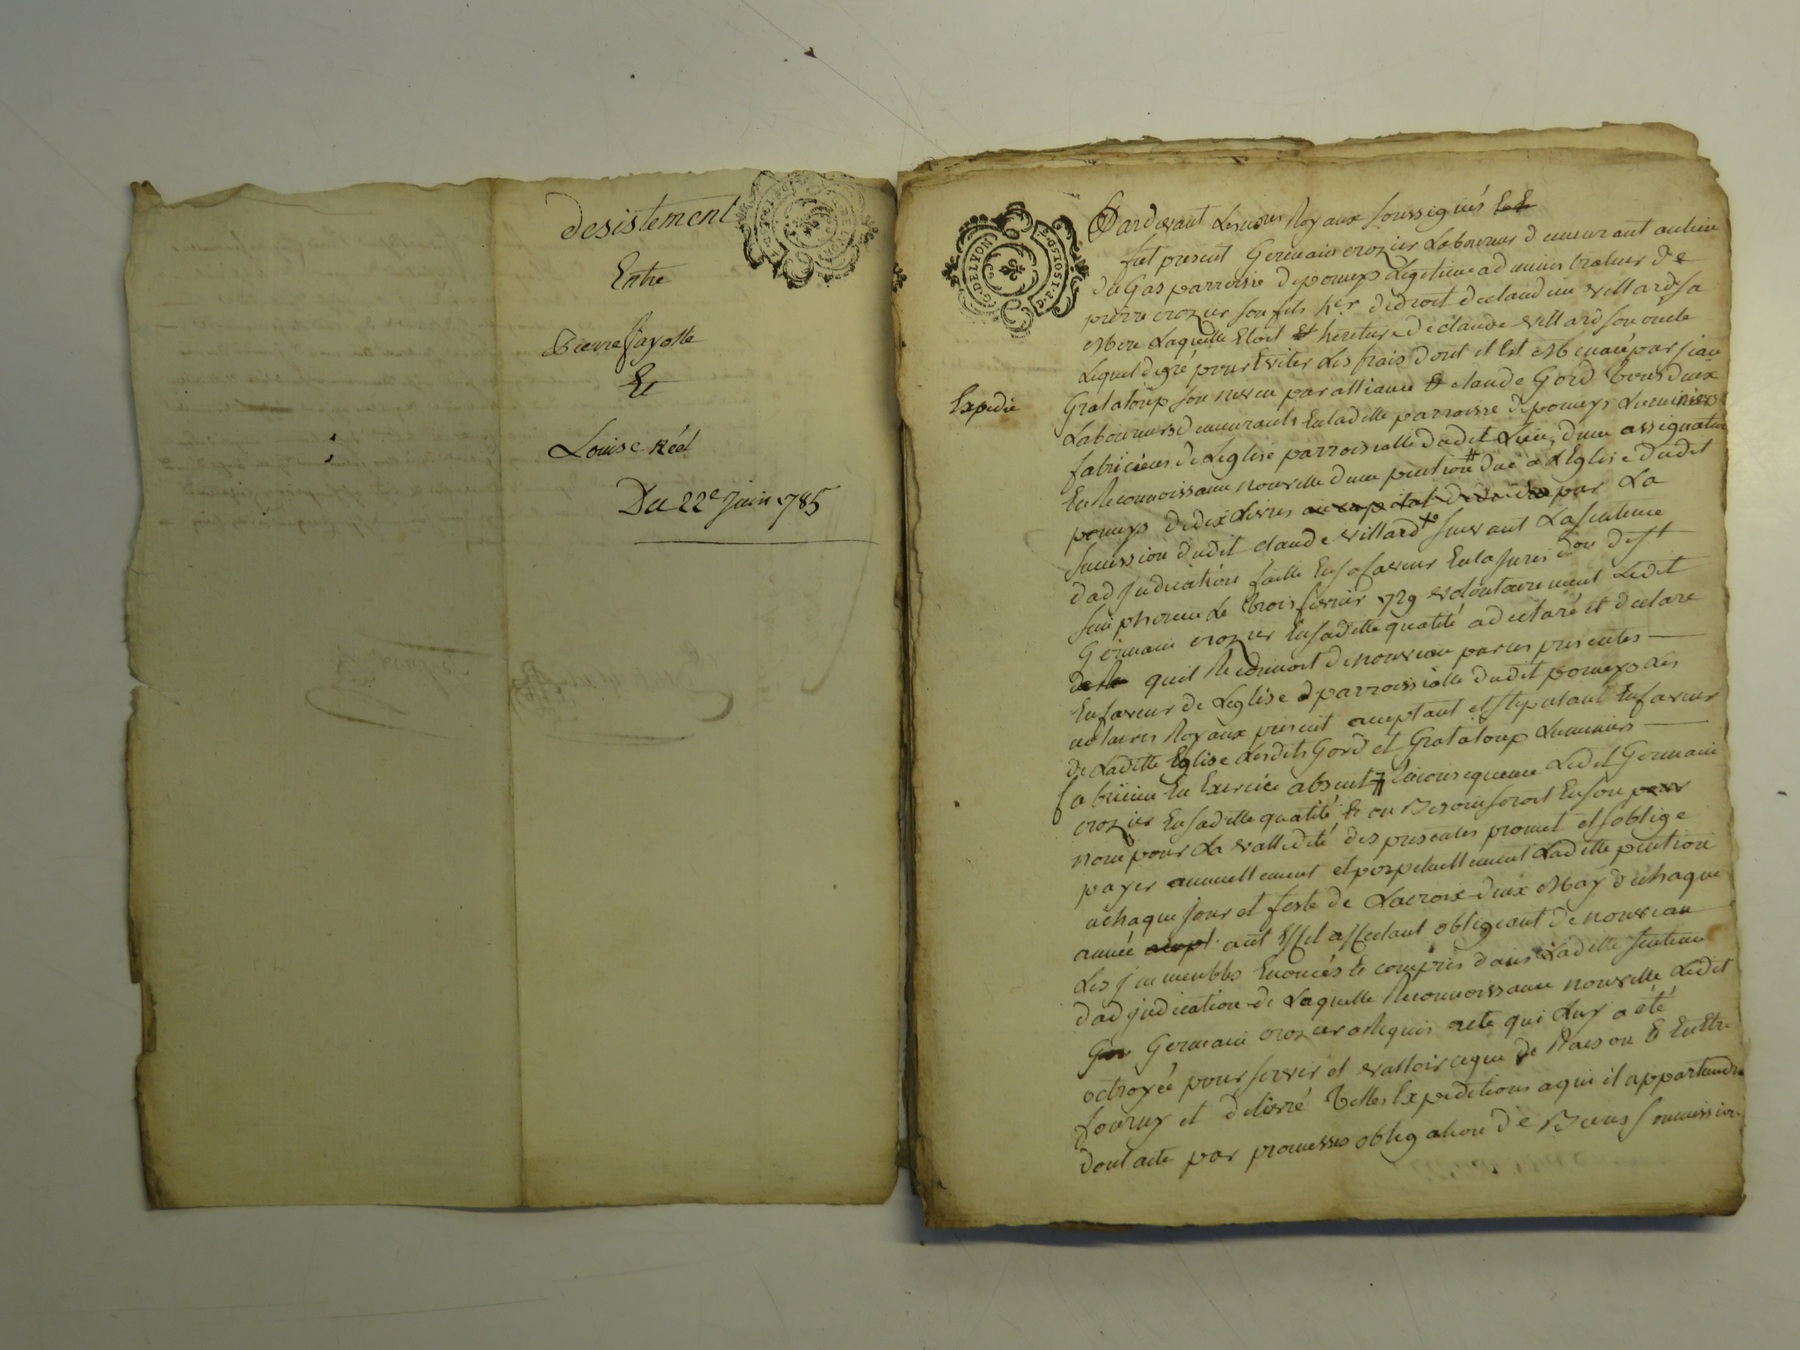 desistement
Entre
Pierre Jayolle
Et
Louise Réel
Du 22e Juin 1785
G. DE LYON
Expedié
Pardevant Les no.res Royaux soussignés
fut present Germain crozier Laboureur demeurant au lieu
du Gas parroisse de pomeys Legitime administrateur de
pierre crozier son fils h.er de droit de claudine villard sa
mere Laquelle Etoit heritiere de claude villard son oncle
Lequel de gré pour Eviter Les frais dont il Est menacé par jean
Grataloup son neveu par alliance & claude Gord tous deux
Laboureurs demeurants En laditte parroisse de pomeys Luminiers
fabriciens de Leglise parroissialle dudit Lieu, d'une assignation
En Reconnoissance nouvelle d'une pention # due a LEglise dudit
pomeys de dix Livres au capital par La
succession dudit claude villard suivant La sentence
dadjudication faitte En sa faveur En la Juris.don de S.t
simphorien Le trois fevrier 1729 volontairement Ledit
Germain crozier En sa ditte qualité a declaré et declare
quil Reconnoit de nouveau par ces presentes
En faveur de Leglise parroissialle dudit pomeys Les
notaires Royaux present acceptant et stipulant En faveur
de Laditte Eglise Lesdits Gord et Grataloup Luminiers
fabriciens En Exercice absent # En consequence Ledit Germain
crozier En sa ditte qualité, & ou Besoin seroit En son
nom pour La vallidité des presentes promet et soblige
payer annuellement et perpetuellement Laditte pention
a chaque jour et feste de La croix deux May de chaque
année a cet Effet affectant obligeant de nouveau
Les jmmeubles Enoncés & compris dans Laditte sentence
dadjudication de Laquelle Reconnoissance nouvelle Ledit
Germain crozier a Requis acte qui Luy a été
octroyée pour servir et valloir ce que de Raison & En Etre
fourny et delivré telles Expeditions a qui il appartiendra
dont acte par promesses obligation de Biens soumissions